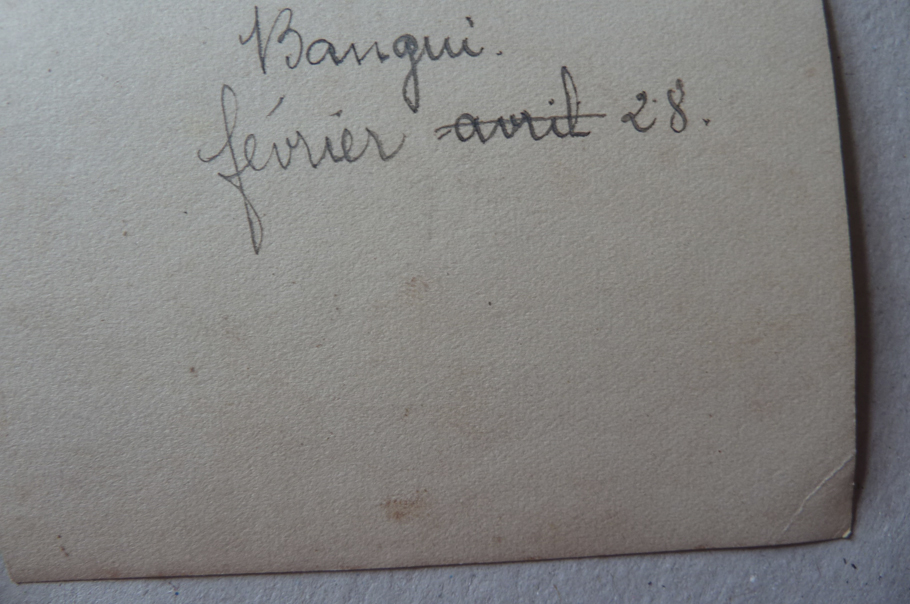 Bangui.
février avril 28.